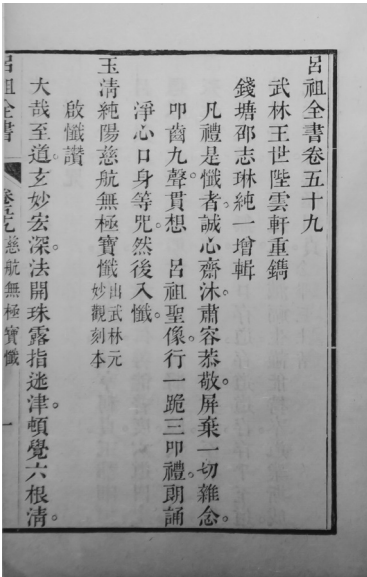 呂祖全書卷五十九
武林王世陛雲軒重鐫
錢塘邵志琳純一增輯
凡禮是懺者。誠心齋沐。肅容恭敬。屏棄一切雜念。
叩齒九聲。貫想 呂祖聖像。行一跪三叩禮。朗誦
淨心口身等咒。然後入懺。
玉清純陽慈航無極寶懺出武林元
妙觀刻本
啟懺讚
大哉至道。玄妙宏深。法開珠露指迷津。頓覺六根清。
呂祖全書 卷五十九 慈航無極寶懺 一